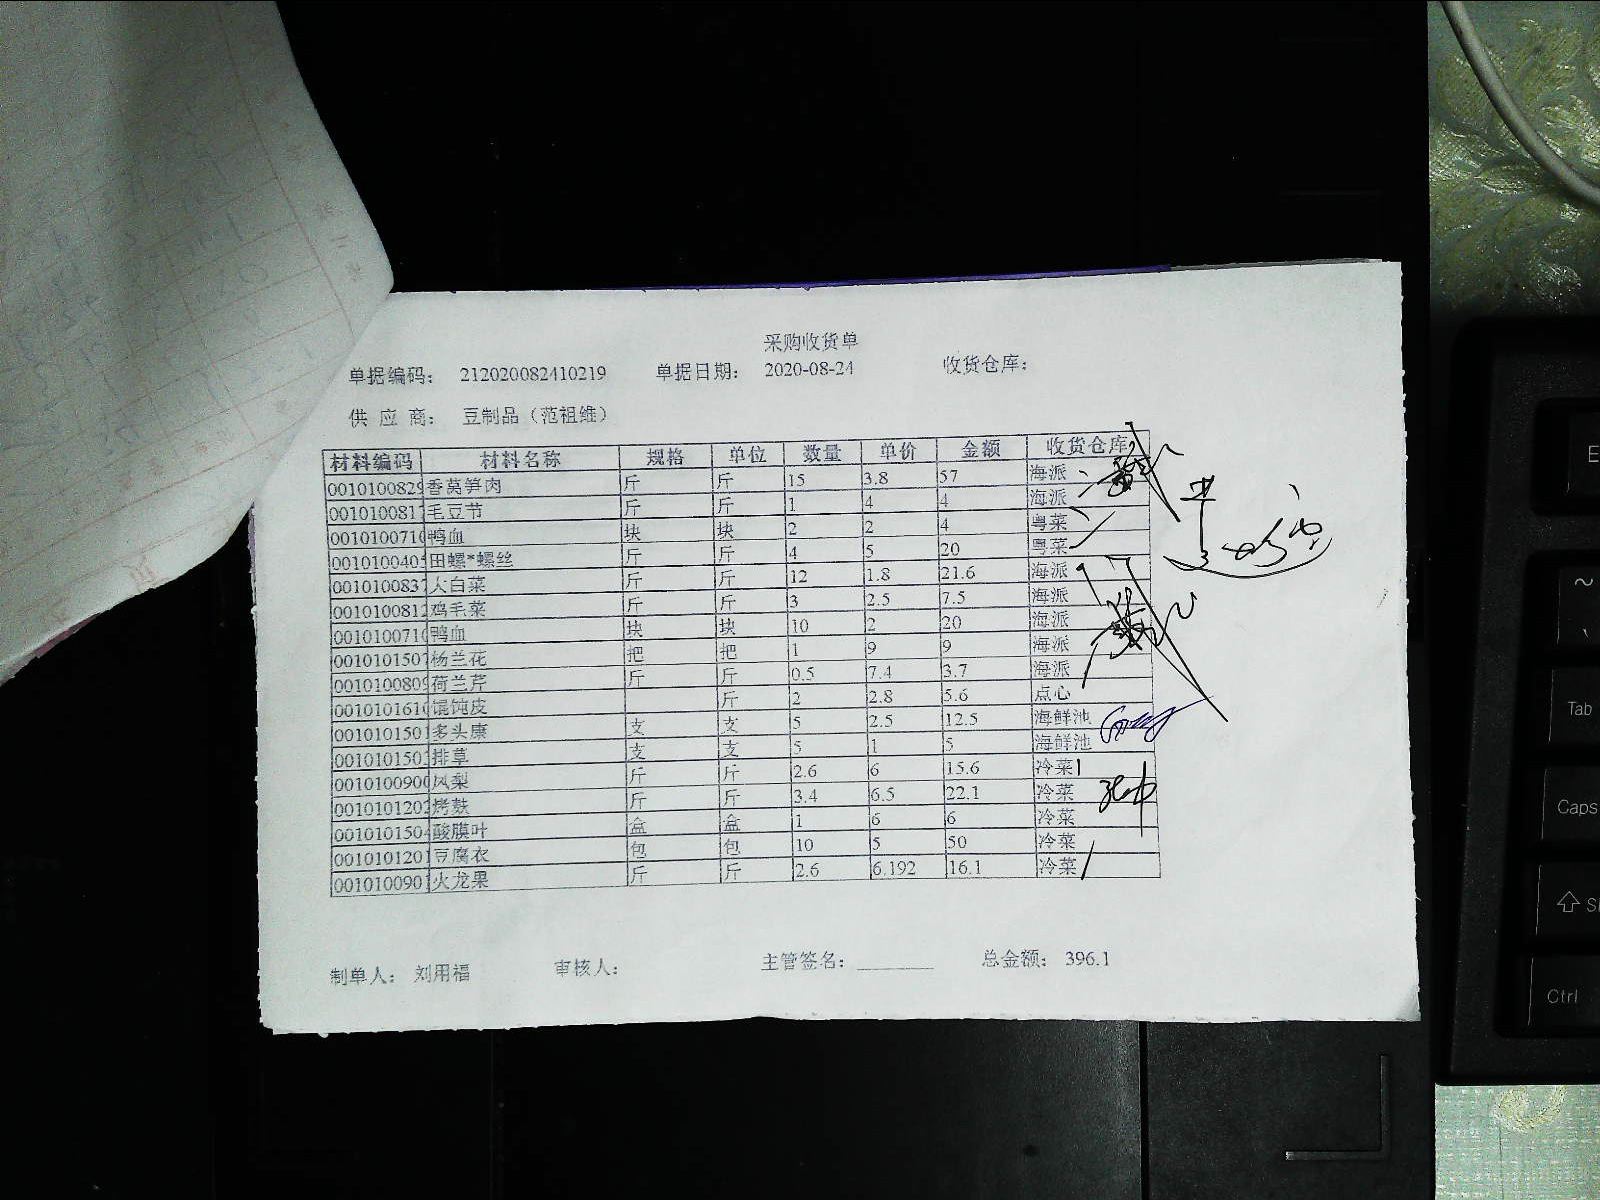 采购收货单
单据编码： 212020082410219 单据日期： 2020-08-24 收货仓库：
供 应 商： 豆制品（范祖维）
材料编码 材料名称 规格 单位 数量 单价 金额 收货仓库
0010100829 香莴笋肉 斤 斤 15 3.8 57 海派
001010081 毛豆节 斤 斤 1 4 4 海派
001010071 鸭血 块 块 2 2 4 粤菜
001010040 田螺*螺丝 斤 斤 4 5 20 粤菜
001010083 大白菜 斤 斤 12 1.8 21.6 海派
001010081 鸡毛菜 斤 斤 3 2.5 7.5 海派
001010071 鸭血 块 块 10 2 20 海派
001010150 杨兰花 把 把 1 9 9 海派
001010080 荷兰芹 斤 斤 0.5 7.4 3.7 海派
001010161 馄饨皮 斤 2 2.8 5.6 点心
001010150 多头康 支 支 5 2.5 12.5 海鲜池
001010150 排草 支 支 5 1 5 海鲜池
001010090 凤梨 斤 斤 2.6 6 15.6 冷菜
001010120 烤麸 斤 斤 3.4 6.5 22.1 冷菜
001010150 酸膜叶 盒 盒 1 6 6 冷菜
001010120 豆腐衣 包 包 10 5 50 冷菜
001010090 火龙果 斤 斤 2.6 6.192 16.1 冷菜
制单人： 刘用福 审核人： 主管签名： 总金额： 396.1
E
Tab
Caps
Ctrl